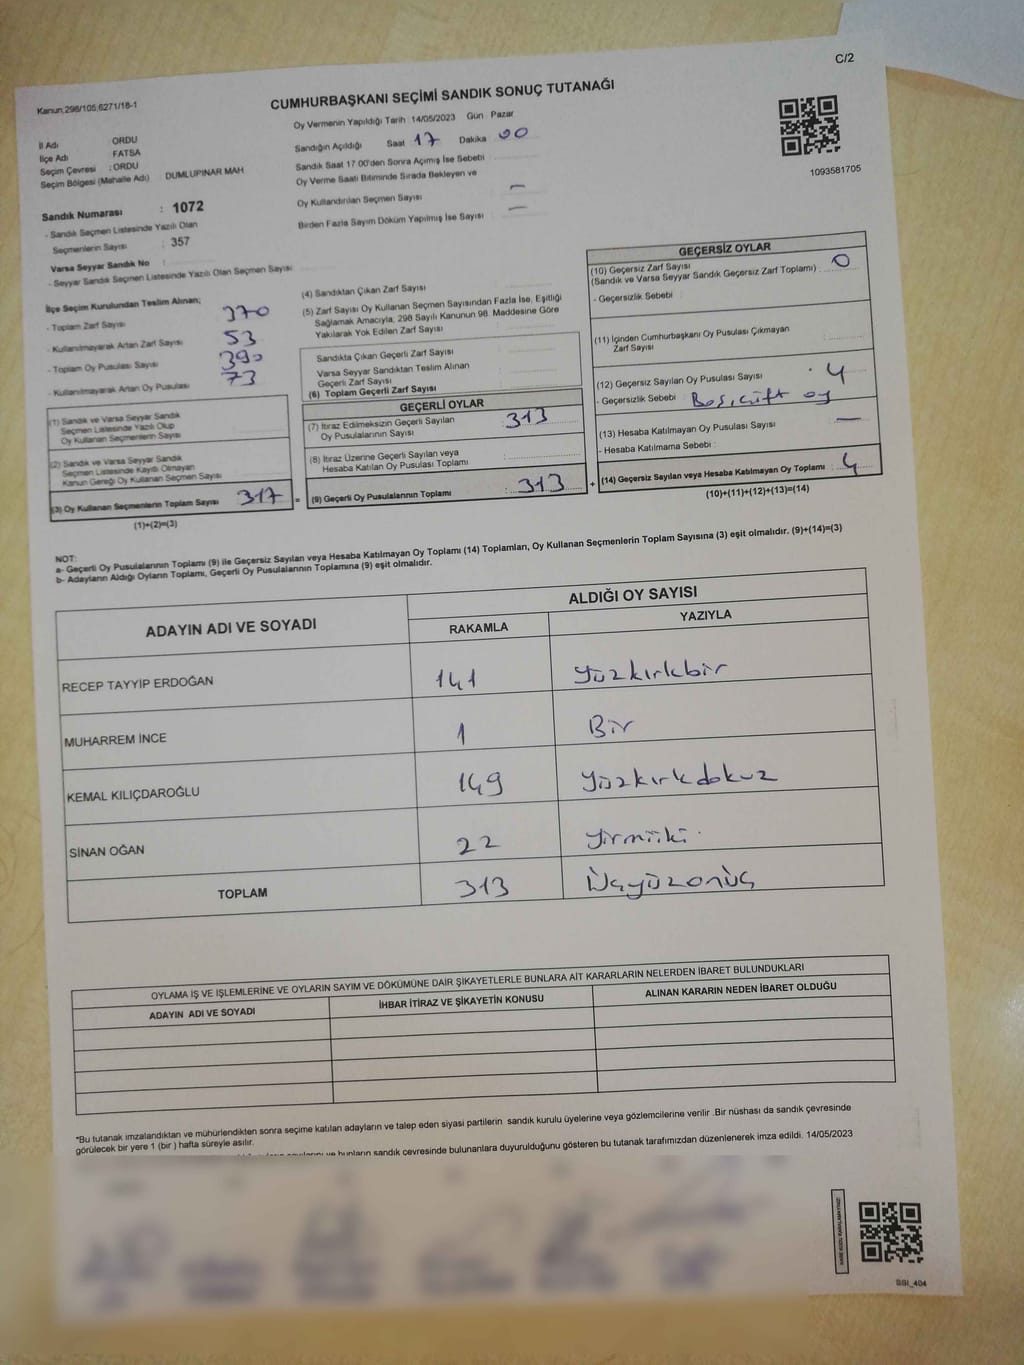 C/2
Kanun;298/105;6271/18-1
CUMHURBAŞKANI SEÇİMİ SANDIK SONUÇ TUTANAĞI
Oy Vermenin Yapıldığı Tarih :14/05/2023 Gün : Pazar
İl Adı : ORDU
İlçe Adı : FATSA
Seçim Çevresi : ORDU
Seçim Bölgesi (Mahalle Adı) : DUMLUPINAR MAH
Sandığın Açıldığı Saat 17 Dakika 00
Sandık Saat 17:00'den Sonra Açımış İse Sebebi
Oy Verme Saati Bitiminde Sırada Bekleyen ve
Oy Kullandırılan Seçmen Sayısı : –
Birden Fazla Sayım Döküm Yapılmış İse Sayısı : –
1093581705
Sandık Numarası : 1072
- Sandık Seçmen Listesinde Yazılı Olan
Seçmenlerin Sayısı : 357
Varsa Seyyar Sandık No :
- Seyyar Sandık Seçmen Listesinde Yazılı Olan Seçmen Sayısı :
İlçe Seçim Kurulundan Teslim Alınan;
- Toplam Zarf Sayısı : 370
- Kullanılmayarak Artan Zarf Sayısı : 53
- Toplam Oy Pusulası Sayısı : 390
- Kullanılmayarak Artan Oy Pusulası : 73
(1) Sandık ve Varsa Seyyar Sandık
Seçmen Listesinde Yazılı Olup
Oy Kullanan Seçmenlerin Sayısı
(2) Sandık ve Varsa Seyyar Sandık
Seçmen Listesinde Kayıtlı Olmayan
Kanun Gereği Oy Kullanan Seçmen Sayısı
(3) Oy Kullanan Seçmenlerin Toplam Sayısı 317 =
(1)+(2)=(3)
(4) Sandıktan Çıkan Zarf Sayısı
(5) Zarf Sayısı Oy Kullanan Seçmen Sayısından Fazla İse, Eşitliği
Sağlamak Amacıyla, 298 Sayılı Kanunun 98. Maddesine Göre
Yakılarak Yok Edilen Zarf Sayısı
Sandıkta Çıkan Geçerli Zarf Sayısı
Varsa Seyyar Sandıktan Teslim Alınan
Geçerli Zarf Sayısı
(6) Toplam Geçerli Zarf Sayısı
GEÇERLİ OYLAR
(7) İtiraz Edilmeksizin Geçerli Sayılan
Oy Pusulalarının Sayısı : 313
(8) İtiraz Üzerine Geçerli Sayılan veya
Hesaba Katılan Oy Pusulası Toplamı
(9) Geçerli Oy Pusulalarının Toplamı : 313 +
GEÇERSİZ OYLAR
(10) Geçersiz Zarf Sayısı
(Sandık ve Varsa Seyyar Sandık Geçersiz Zarf Toplamı) : 0
- Geçersizlik Sebebi :
(11) İçinden Cumhurbaşkanı Oy Pusulası Çıkmayan
Zarf Sayısı
(12) Geçersiz Sayılan Oy Pusulası Sayısı : 4
- Geçersizlik Sebebi : Boş, çift oy
(13) Hesaba Katılmayan Oy Pusulası Sayısı : –
- Hesaba Katılmama Sebebi :
(14) Geçersiz Sayılan veya Hesaba Katılmayan Oy Toplamı : 4
(10)+(11)+(12)+(13)=(14)
NOT:
a- Geçerli Oy Pusulalarının Toplamı (9) ile Geçersiz Sayılan veya Hesaba Katılmayan Oy Toplamı (14) Toplamları, Oy Kullanan Seçmenlerin Toplam Sayısına (3) eşit olmalıdır. (9)+(14)=(3)
b- Adayların Aldığı Oyların Toplamı, Geçerli Oy Pusulalarının Toplamına (9) eşit olmalıdır.
ADAYIN ADI VE SOYADI
ALDIĞI OY SAYISI
RAKAMLA YAZIYLA
RECEP TAYYİP ERDOĞAN 141 Yüzkırkbir
MUHARREM İNCE 1 Bir
KEMAL KILIÇDAROĞLU 149 Yüzkırkdokuz
SİNAN OĞAN 22 Yirmiiki
TOPLAM 313 Üçyüzonüç
OYLAMA İŞ VE İŞLEMLERİNE VE OYLARIN SAYIM VE DÖKÜMÜNE DAİR ŞİKAYETLERLE BUNLARA AİT KARARLARIN NELERDEN İBARET BULUNDUKLARI
ADAYIN ADI VE SOYADI İHBAR İTİRAZ VE ŞİKAYETİN KONUSU ALINAN KARARIN NEDEN İBARET OLDUĞU
*Bu tutanak imzalandıktan ve mühürlendikten sonra seçime katılan adayların ve talep eden siyasi partilerin sandık kurulu üyelerine veya gözlemcilerine verilir .Bir nüshası da sandık çevresinde
görülecek bir yere 1 (bir ) hafta süreyle asılır.
ve bunların sandık çevresinde bulunanlara duyurulduğunu gösteren bu tutanak tarafımızdan düzenlenerek imza edildi. 14/05/2023
SSI_404